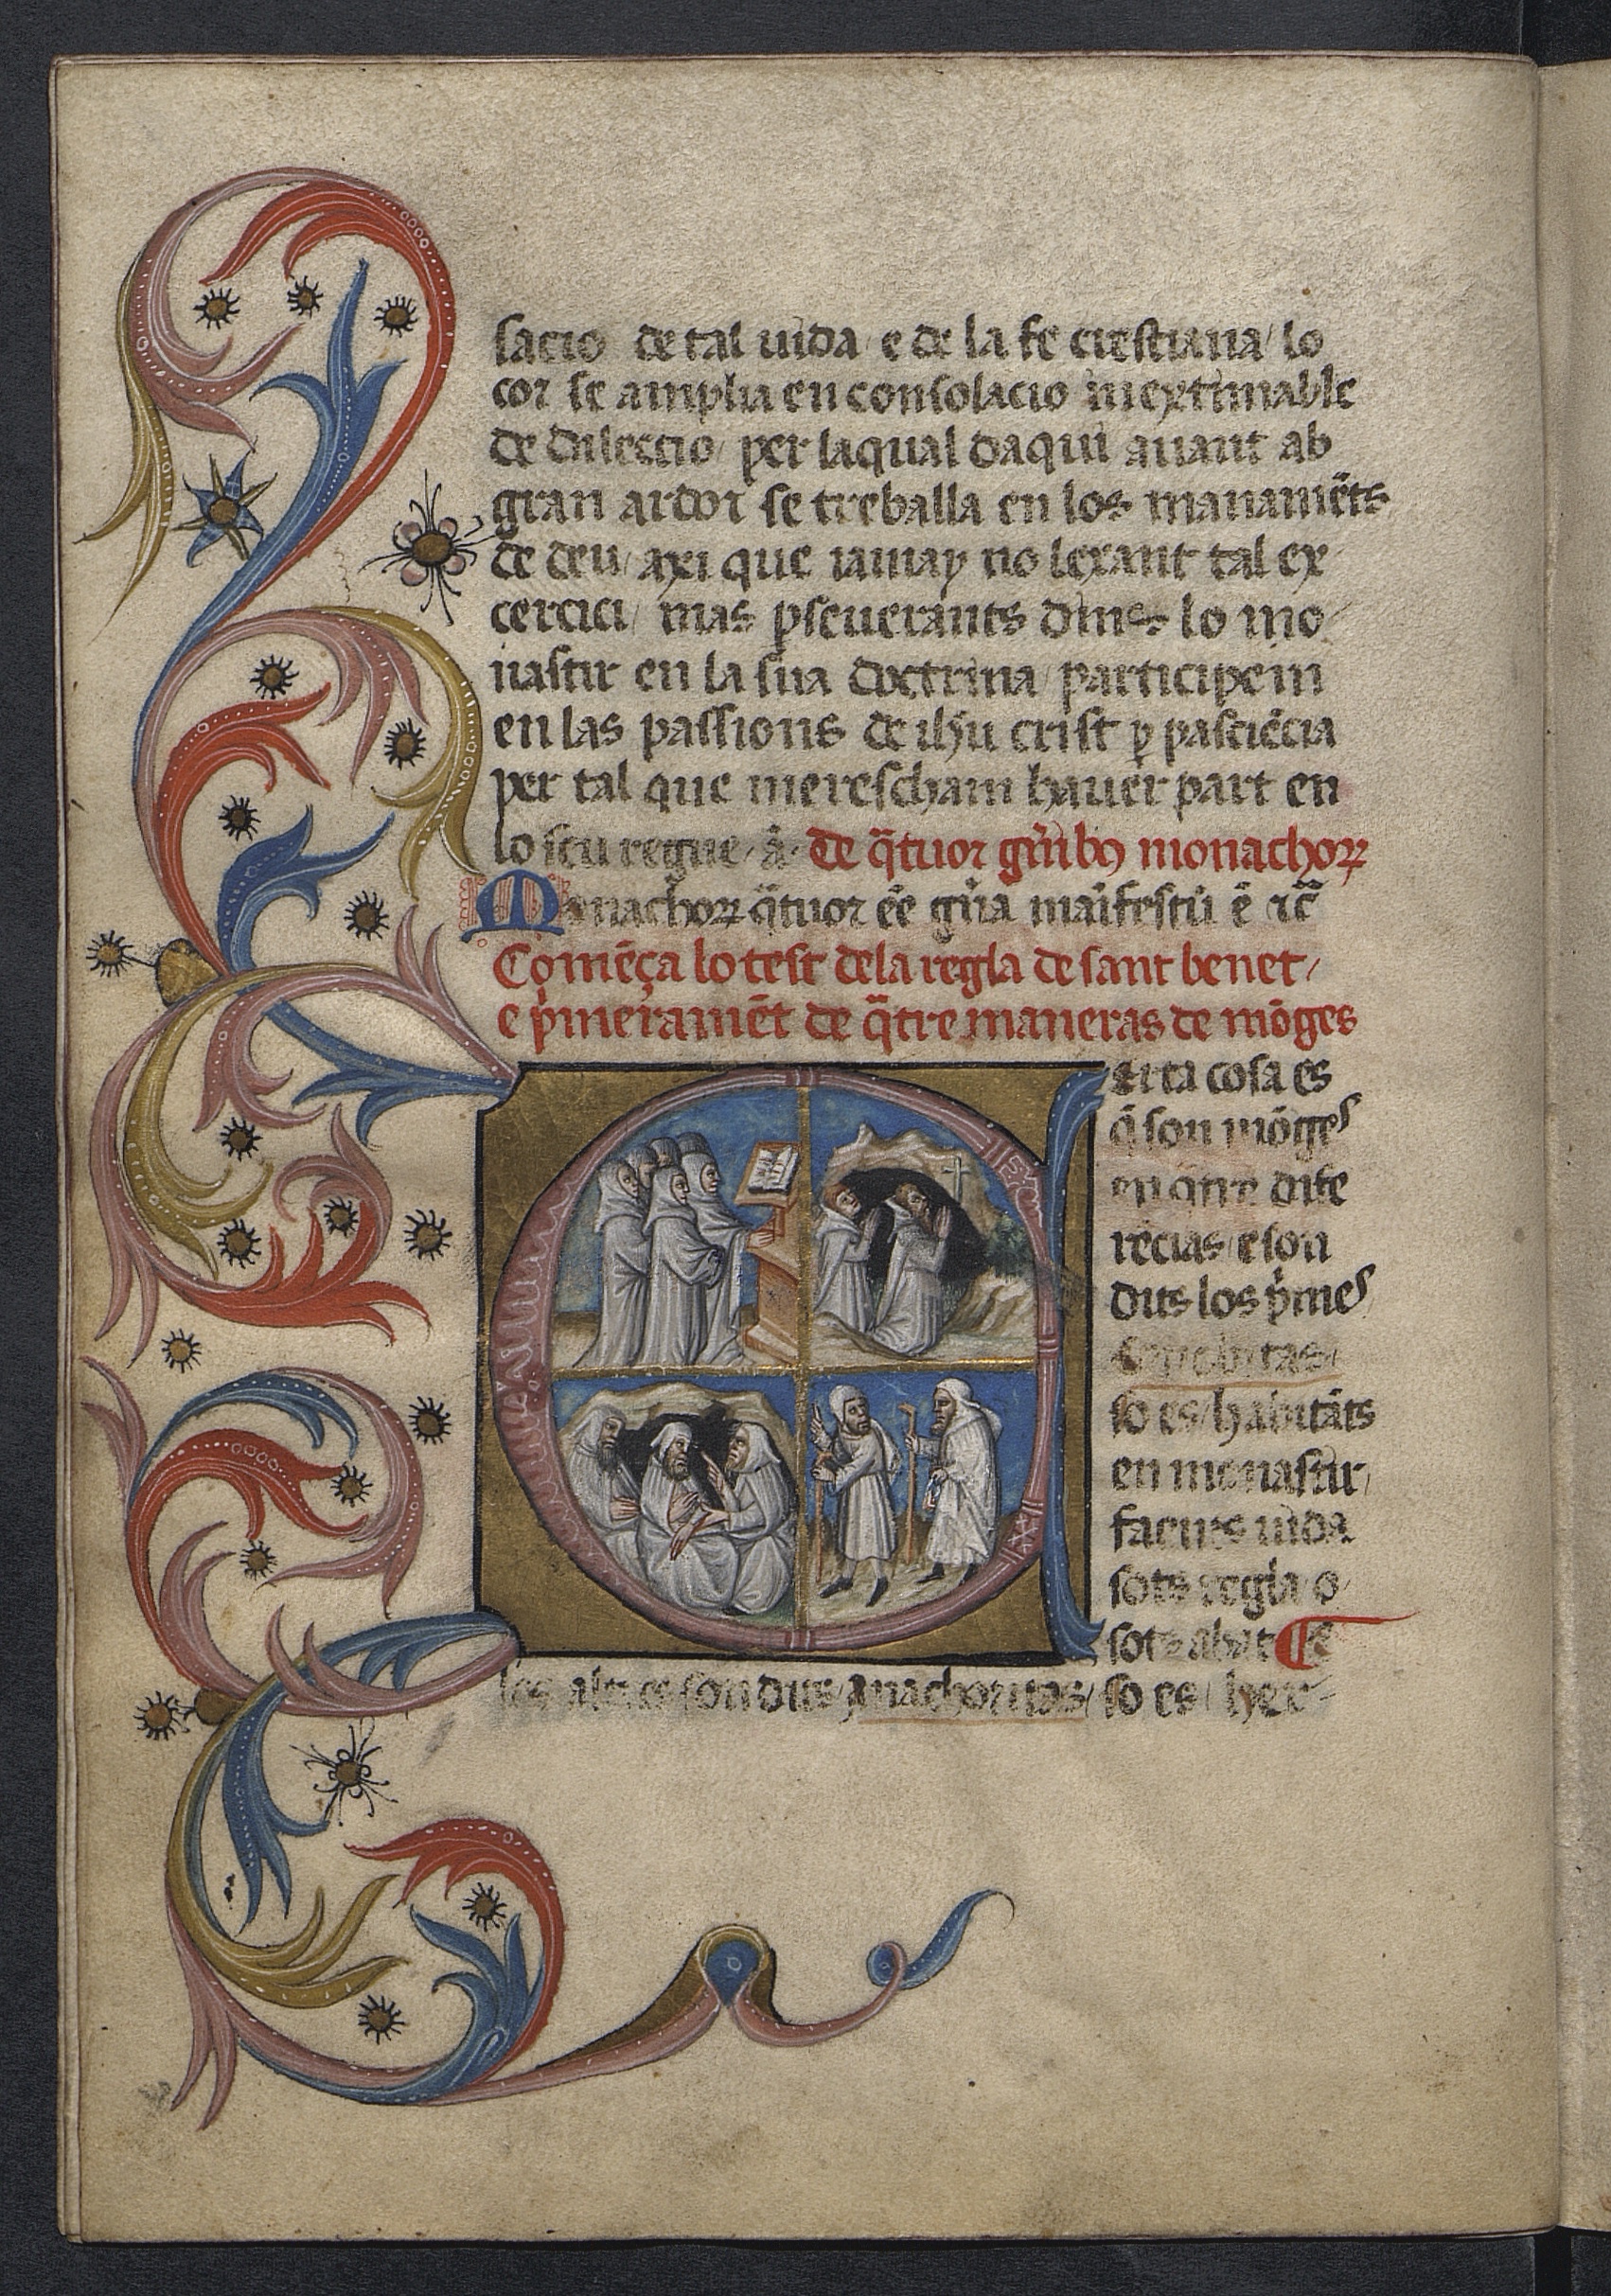 sacio de tal uida / e de la fe crestiana / lo
cor se amplia en consolacio inextimable
de dileccio / per laqual daqui auant ab
gran ardor se treballa en los manamēts
de deu / axi que iamay no lexant tal ex
cercici / mas ꝑseuerants dins lo mo
nastir en la sua doctrina / participem
en las passions de ihū crist ꝑ pasciēcia
per tal que merescham hauer part en
lo seu regne · a · De q̄tuor gn̄ibꝰ monachoꝝ
Monachoꝝ q̄tuor eē gn̄a maifestū ē ⁊c̄
Comēça lo test dela regla de sant benet /
e p̄meramēt de q̄tre maneras de mōges
Certa cosa es
q̄ son mōges
en q̄tre dife
recias / e son
dits los p̄mes
Cenobitas /
so es / habitāts
en monastir /
faents uida
sots regla o
sots abat ¶ E
los altres son dits / Anachoritas / so es / her